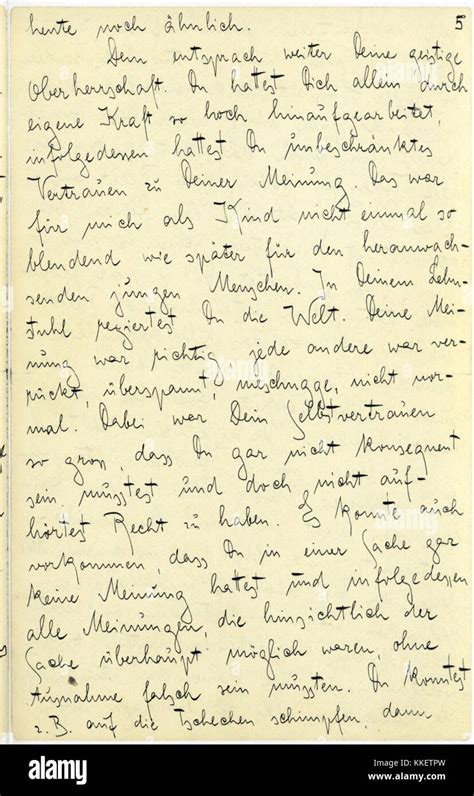 5
heute noch ähnlich.
Dem entsprach weiter Deine geistige
Oberherrschaft. Du hattest Dich allein durch
eigene Kraft so hoch hinaufgearbeitet,
infolgedessen hattest Du unbeschränktes
Vertrauen zu Deiner Meinung. Das war
für mich als Kind nicht einmal so
blendend wie später für den heranwach-
senden jungen Menschen. In Deinem Lehn-
stuhl regiertest Du die Welt. Deine Mei-
nung war richtig, jede andere war ver-
rückt, überspannt, meschugge, nicht nor-
mal. Dabei war Dein Selbstvertrauen
so gross, dass Du gar nicht konsequent
sein musstest und doch nicht auf-
hörtest Recht zu haben. Es konnte auch
vorkommen, dass Du in einer Sache gar
keine Meinung hattest und infolgedessen
alle Meinungen, die hinsichtlich der
Sache überhaupt möglich waren, ohne
Ausnahme falsch sein mussten. Du konntest
z.B. auf die Tschechen schimpfen, dann
alamy
Image ID: KKETPW
www.alamy.com